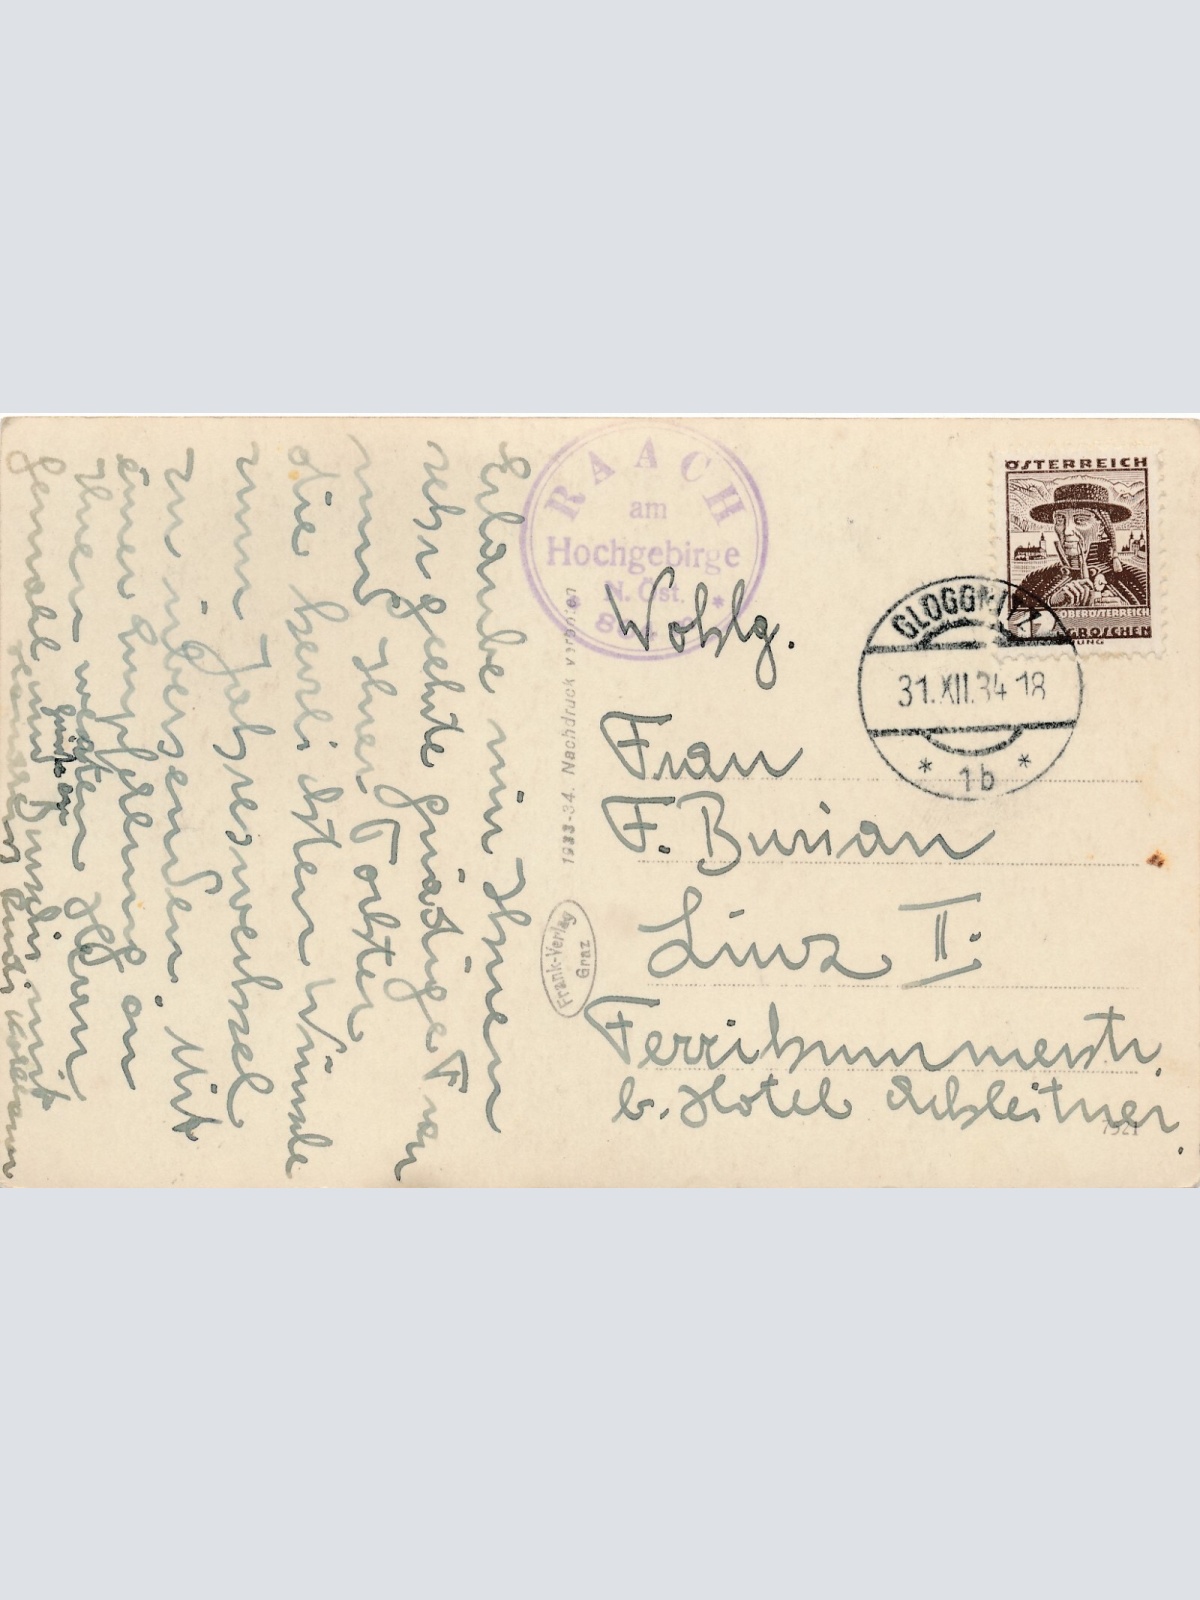 Erlaube mir Ihnen
sehr geehrte gnädige Frau
und Ihrer Tochter
die herzlichsten Wünsche
zum Jahreswechsel
zu übersenden. Mit
einer Empfehlung an
Ihren werten Herrn
Gemahl und
mit
RAACH
am
Hochgebirge
N. Öst.
1933-34. Nachdruck verboten
Frank-Verlag
Graz
ÖSTERREICH
OBERÖSTERREICH
GROSCHEN
GLOGGNITZ
31.XII.34 18
* 1b *
Wohlg.
Frau
F. Burian
Linz II.
b. Hotel Schleitner.
7521